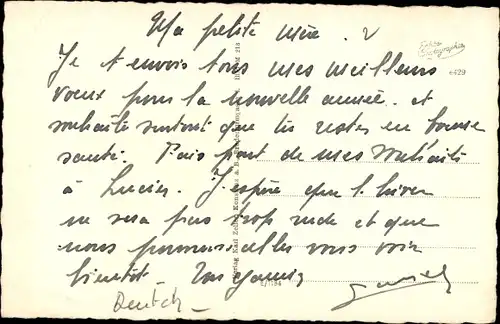 Ma petite mère. 2
Je t envois tous mes meilleurs
voeux pour la nouvelle année. et
souhaite surtout que tu restes en bonne
santé. Fais part de mes souhaits
à Lucien. J'espère que l'hiver
ne sera pas trop rude et que
nous pourrons aller vous voir
bientôt.
Deutsch